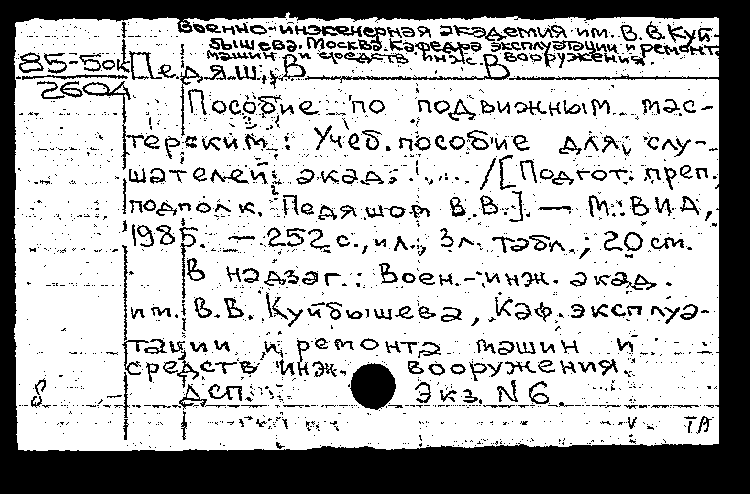 Военно-инженерная академия им. В.В.Куй-
бышева. Москва. Кафедра эксплуатации и ремонта
машин и средств инж. вооружения.
85-5бк Педяш, В В
2604
Пособие по подвижным мас-
терским : Учеб. пособие для слу-
шателей акад. ... / [Подгот. преп.
подполк. Педяшом В.В.]. — М.: ВИА,
1985. — 252 с., ил., 3 л. табл. ; 20 см.
В надзаг.: Воен.-инж. акад.
им. В.В. Куйбышева, Каф. эксплуа-
тации и ремонта машин и
средств инж. вооружения.
8 ДСП. Экз. N 6.